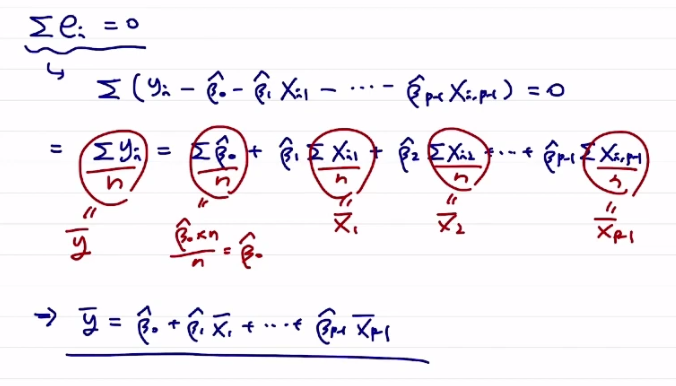 Σ eᵢ = 0
↳ Σ (yᵢ − β̂₀ − β̂₁ xᵢ₁ − ⋯ − β̂ₚ₋₁ xᵢ,ₚ₋₁) = 0
= Σyᵢ/n = Σβ̂₀/n + β̂₁ Σxᵢ₁/n + β̂₂ Σxᵢ₂/n + ⋯ + β̂ₚ₋₁ Σxᵢ,ₚ₋₁/n
= ȳ  = β̂₀×n/n = β̂₀  = x̄₁  = x̄₂  = x̄ₚ₋₁
→ ȳ = β̂₀ + β̂₁ x̄₁ + ⋯ + β̂ₚ₋₁ x̄ₚ₋₁